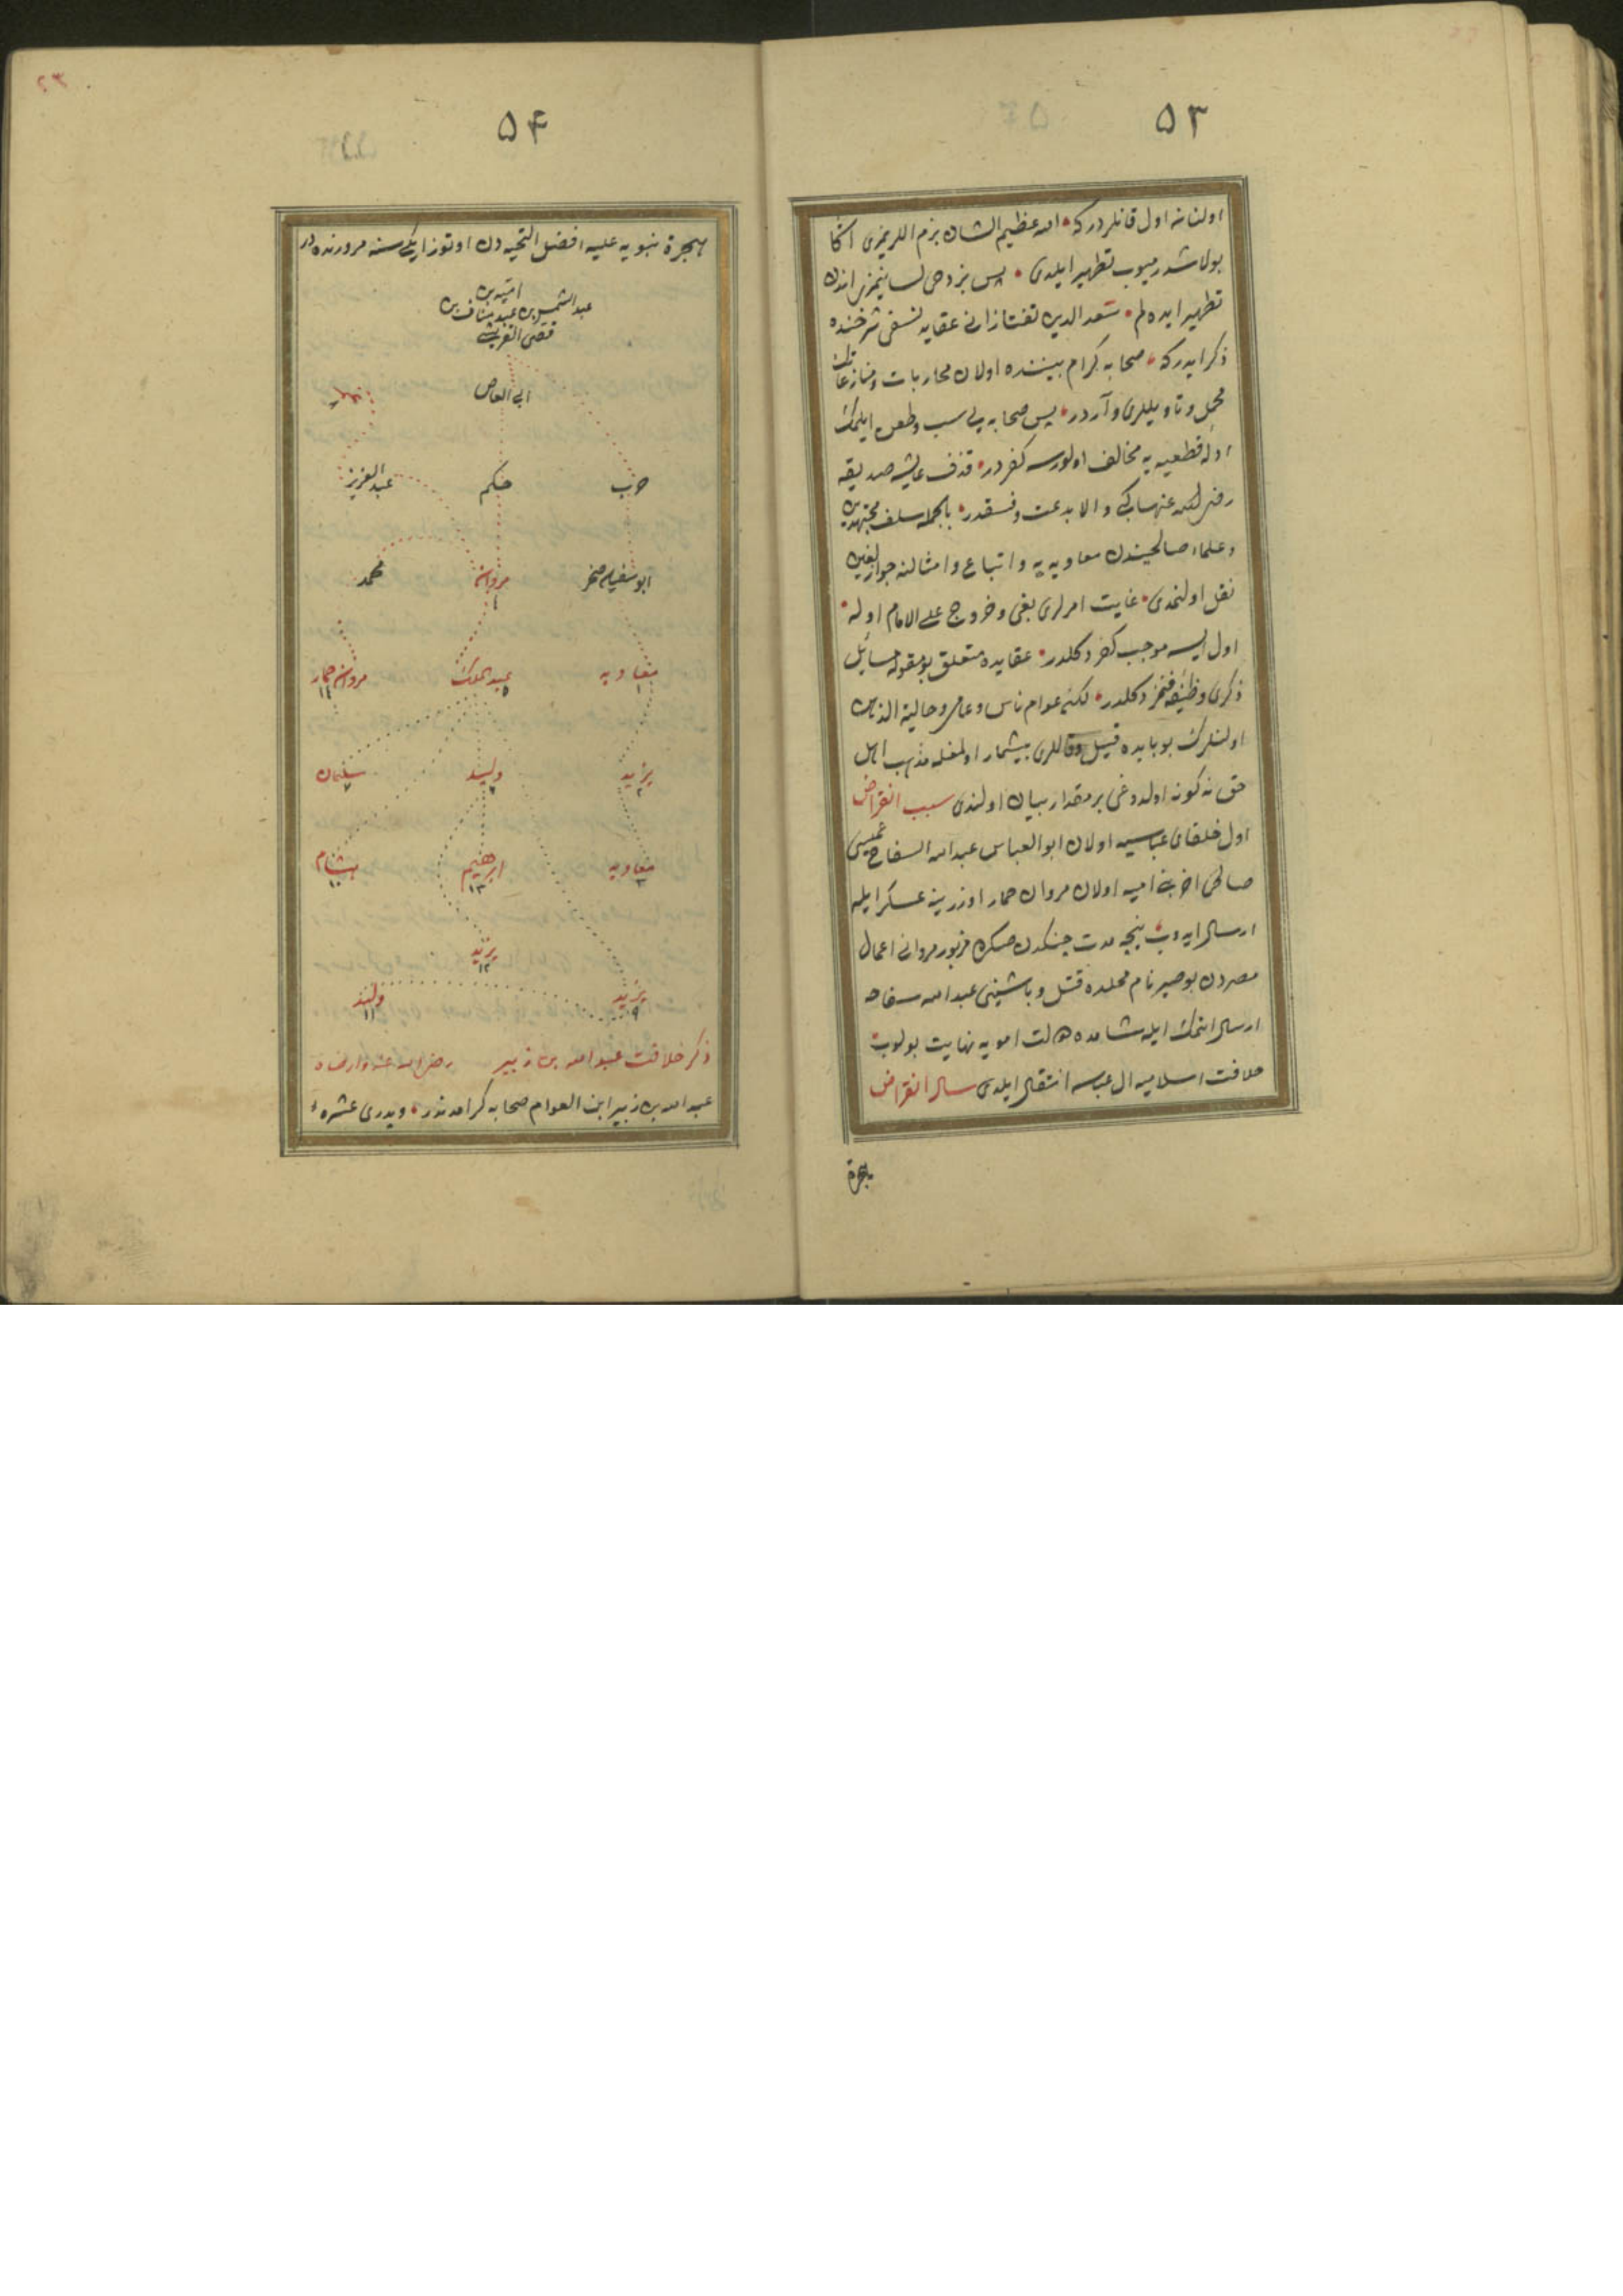 ۵۳
اولنانه اول قانلردركه الله عظيم الشان بزم اللريمزى اكا
بولاشدرميوب تطهير ايلدى پس بز دخى لسانيمزى اندن
تطهير ايده لم سعد الدين تفتازانى عقايد نسفى شرحنده
ذكر ايدركه صحابه كرام بيننده اولان محاربات ومنازعاتك
محمل وتاويللرى واردر پس صحابه يى سب وطعن ايلمك
ادله قطعيه يه مخالف اولورسه كفردر قذف عايشه صديقه
رضى الله عنها كبى والا بدعت وفسقدر بالجمله سلف مجتهدين
وعلماء صالحيندن معاويه يه واتباع وامثالنه جواز لعن
نقل اولنمدى غايت امرلرى بغى وخروج على الامام اوله
اول ايسه موجب كفر دكلدر عقايده متعلق بو مقوله مسائل
ذكرى وظيفه مز دكلدر لكن عوام ناس وعامى وحالية الذهن
اولنلرك بو بابده قيل وقاللرى بيشمار اولمغله مذهب اهل
حق نه كونه اولدوغى بر مقدار بيان اولندى سبب انقراض
اول خلفاى عباسيه اولان ابو العباس عبد الله السفاح عميسى
صالحى اخر بنى اميه اولان مروان حمار اوزرينه عسكر ايله
ارسال ايدوب نيجه مدت جنكدن صكره مزبور مروانى اعمال
مصردن بوصير نام محلده قتل وباشينى عبد الله سفاحه
ارسال اتمك ايله شامده دولت امويه نهايت بولوب
خلافت اسلاميه ال عباسه انتقال ايلدى سال انقراض
هجرة
۲۳
۵۴
هجرة نبويه عليه افضل التحيه دن اوتوز ايكى سنه مرورنده در
اميه بن
عبد الشمس بن عبد مناف بن
قصى القريشى
ابى العاص
حرب حكم عبد العزيز
ابو سفيان صخر مروان ٤ محمد
معاويه ١ عبد الملك ٥ مروان حمار ١٤
يزيد ٢ وليد ٦ سليمان ٧
معاويه ٣ ابرهيم ١٣ هشام ١٠
يزيد ١٢
يزيد ٩ وليد ١١
ذكر خلافت عبد الله بن زبير رضى الله عنه وارضاه
عبد الله بن زبير ابن العوام صحابه كرامدندر وپدرى عشرهٔ